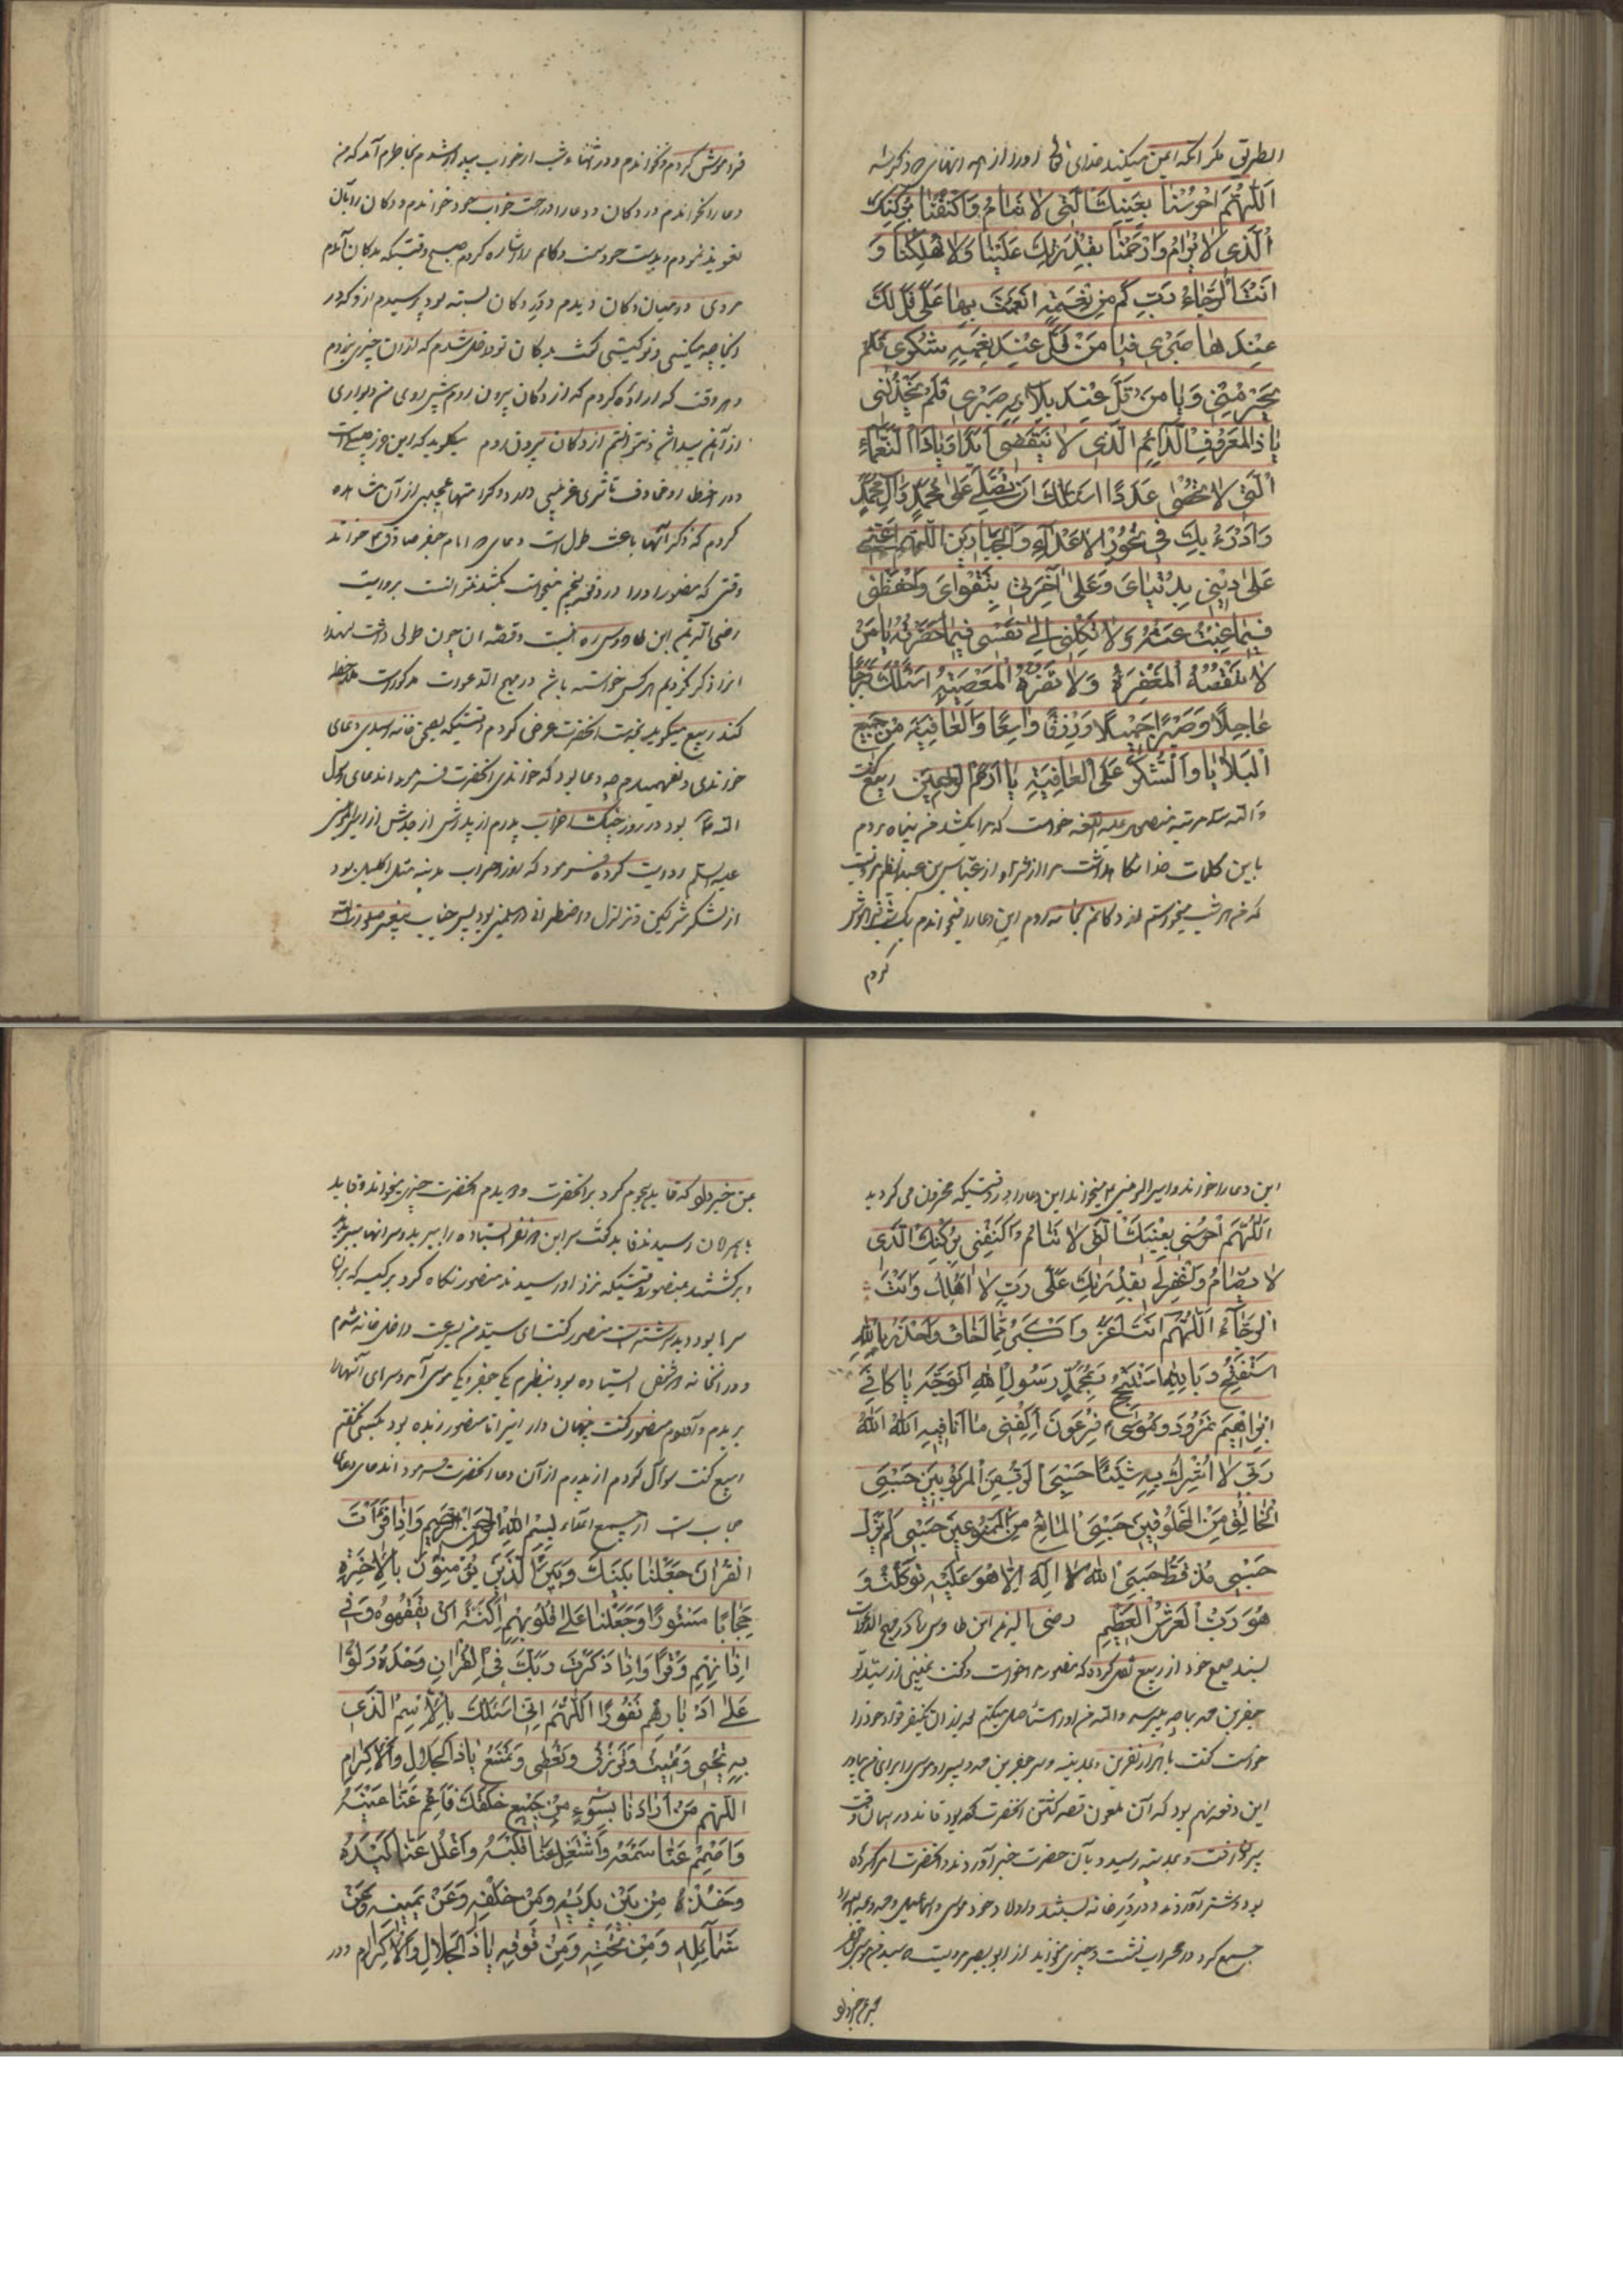 الطریق مکر آنکه ایمن میکند خدای تعالی اورا از
اَللّهُمَّ احْرُسْنا بِعَیْنِكَ الَّتی لا تَنامُ وَاکْنُفْنا بِرُکْنِكَ
الَّذی لا یُرامُ وَارْحَمْنا بِقُدْرَتِكَ عَلَیْنا وَلا تُهْلِکْنا وَ
اَنْتَ الرَّجاءُ رَبِّ کَمْ مِنْ نِعْمَةٍ اَنْعَمْتَ بِها عَلَیَّ قَلَّ لَكَ
عِنْدَها فَیا مَنْ قَلَّ عِنْدَ نِعْمَتِهِ شُکْری فَلَمْ
یَحْرِمْنی وَیا مَنْ قَلَّ عِنْدَ بَلائِهِ صَبْری فَلَمْ یَخْذُلْنی
یا ذَا الْمَعْرُوفِ الدّائِمِ الَّذی لا یَنْقَضی اَبَدًا وَیا ذَا النَّعْماءِ
الَّتی لا تُحْصی عَدَدًا اَسْئَلُكَ اَنْ تُصَلِّیَ عَلی مُحَمَّدٍ وَآلِ مُحَمَّدٍ
وَاَدْرَءُ بِكَ فی نُحُورِ الْاَعْداءِ وَالْجَبّارینَ اَللّهُمَّ اَعِنّی
عَلی دینی بِدُنْیایَ وَعَلی آخِرَتی بِتَقْوایَ وَاحْفَظْنی
فیما غِبْتُ عَنْهُ وَلا تَکِلْنی اِلی نَفْسی فیما حَضَرْتُهُ یا مَنْ
لا تَنْقُصُهُ الْمَغْفِرَةُ وَلا تَضُرُّهُ الْمَعْصِیَةُ اَسْئَلُكَ فَرَجًا
عاجِلًا وَصَبْرًا جَمیلًا وَرِزْقًا واسِعًا وَالْعافِیَةَ مِنْ جَمیعِ
الْبَلایا وَالشُّکْرَ عَلَی الْعافِیَةِ یا اَرْحَمَ الرّاحِمینَ ربیع گفت
والله سه مرتبه منصور علیه اللعنه خواست که مرا بکشد من پناه بردم
باین کلمات خدا نکاهداشت مرا از شر او از عباس بن عبدالعظیم مرویست
که من هر شب میخواستم از دکانم بخانه روم این دعا را میخواندم یک شب فراموش
کردم
فراموش کردم و نخواندم و در اثناء شب از خواب بیدار شدم بخاطرم آمد که من
دعا را نخواندم در دکان و دعا را در رخت خواب خود خواندم و دکان را بآن
تعویذ نمودم و بدست خود سمت دکانم را اشاره کردم صبح وقتیکه بدکان آمدم
مردی در میان دکان دیدم و در دکان بسته بود پرسیدم از او که در
اینجا چه میکنی و تو کیستی گفت بدکان تو داخل شدم که از آن چیزی ببرم
هر وقت که اراده کردم که از دکان بیرون روم پیش روی من دیواری
از آهن پیدا شد نتوانستم از دکان بیرون روم میگوید که این حرز چیست
و در حفظ و تأثیری غریبی دارد و کرامتها عجیبی از آن مشاهده
کردم که ذکر آنها باعث طول است دعای امام جعفر صادق ع خواند
وقتی که منصور اورا در دفعه پنجم میخواست بکشد نتوانست بروایت
رضی الدین ابن طاووس ره است و قصه آن چون طولی داشت لهذا
آنرا ذکر نکردیم هر کس خواسته باشد در مهج الدعوات مذکور است ملاحظه
کند ربیع میکوید بخدمت آنحضرت عرض کردم وقتیکه بصحن خانه رسیدی دعای
خواندی و نفهمیدم چه دعا بود که خواندی آنحضرت فرمود اند دعای رسول
الله ص بود در روز جنک احزاب پدرم از پدرش از جدش از امیرالمؤمنین
علیه السلم روایت کرده فرمود که روز احزاب مدینه مثل اکلیل بود
از لشکر مشرکین و تزلزل و اضطراب در مسلمین بود پس جناب پیغمبر صلوات الله
این دعا را خواند و امیرالمؤمنین ع میخواند این دعا را در وقتیکه محزون می کردید
اَللّهُمَّ احْرُسْنی بِعَیْنِكَ الَّتی لا تَنامُ وَاکْنُفْنی بِرُکْنِكَ الَّذی
لا یُضامُ وَاغْفِرْ لی بِقُدْرَتِكَ عَلَیَّ رَبِّ لا اَهْلِكُ وَاَنْتَ
الرَّجاءُ اَللّهُمَّ اَنْتَ اَعَزُّ وَاَکْبَرُ مِمّا اَخافُ وَاَحْذَرُ بِاللهِ
اَسْتَفْتِحُ وَبِاللهِ اَسْتَنْجِحُ بِمُحَمَّدٍ رَسُولِ اللهِ اَتَوَجَّهُ یا کافِیَ
اِبْراهیمَ نَمْرُودَ وَمُوسی فِرْعَوْنَ اِکْفِنی ما اَنَا فیهِ اَللهُ اَللهُ
رَبّی لا اُشْرِكُ بِهِ شَیْئًا حَسْبِیَ الرَّبُّ مِنَ الْمَرْبُوبینَ حَسْبِیَ
الْخالِقُ مِنَ الْمَخْلُوقینَ حَسْبِیَ الْمانِعُ مِنَ الْمَمْنُوعینَ حَسْبی مَنْ لَمْ یَزَلْ
حَسْبی مُذْ قَطُّ حَسْبِیَ اللهُ لا اِلهَ اِلّا هُوَ عَلَیْهِ تَوَکَّلْتُ وَ
هُوَ رَبُّ الْعَرْشِ الْعَظیمِ رضی الدین ابن طاوس ره در مهج الدعوات
بسند صحیح خود از ربیع نقل کرده که منصور مرا خواست و گفت نمیبینی از
جعفر بن محمد بما چه میرسد والله من اورا مستأصل میکنم بعد از آن یکنفر قواد خود را
خواست گفت با هزار نفر برو بمدینه و سر جعفر بن محمد و پسر او موسی را برای من بیاور
این دفعه نهم بود که آن ملعون قصد کشتن آنحضرت کرده بود قائد در همان وقت
بیرون رفت و بمدینه رسید و بآن حضرت خبر آوردند و آنحضرت امر کرد
دو شتر آوردند و در در خانه بستند و اولاد خود موسی و اسماعیل و محمد و عبدالله را
جمع کرد در محراب نشست و چیزی میخواند از ابو بصیر مرویست سیدم موسی بن جعفر
بمن خبر داد
بمن خبر داد که قاید هجوم کرد بر آنحضرت و دیدم آنحضرت چیزی میخواند و قاید
باهمراهان رسید قاید گفت سر این دو نفر ایستاده را ببرید و سر آنها ببریدند
و برکشتند بمنصور وقتیکه نزد او رسیدند منصور نکاه کرد بر کیسه که در آن
سرها بود دید سر شتر است منصور گفت ای سید من بسرعت داخل خانه شدم
و در آنخانه دو شخص ایستاده بود بنظرم یکی جعفر و یکی موسی آمد و سرهای آنها را
بریدم و آوردم منصور گفت پنهان دار این را تا منصور زنده بود بکسی نگفتم
ربیع گفت سؤال کردم از پدرم از آن دعا آنحضرت فرمود اند دعای
حجاب است از جمیع اعداء بِسْمِ اللهِ الرَّحْمنِ الرَّحیمِ وَاِذا قَرَأْتَ
الْقُرْانَ جَعَلْنا بَیْنَكَ وَبَیْنَ الَّذینَ لا یُؤْمِنُونَ بِالْاخِرَةِ
حِجابًا مَسْتُورًا وَجَعَلْنا عَلی قُلُوبِهِمْ اَکِنَّةً اَنْ یَفْقَهُوهُ وَفی
اذانِهِمْ وَقْرًا وَاِذا ذَکَرْتَ رَبَّكَ فِی الْقُرْانِ وَحْدَهُ وَلَّوْا
عَلی اَدْبارِهِمْ نُفُورًا اَللّهُمَّ اِنّی اَسْئَلُكَ بِالْاِسْمِ الَّذی
بِهِ تُحْیی وَتُمیتُ وَتَرْزُقُ وَتُعْطی وَتَمْنَعُ یا ذَا الْجَلالِ وَالْاِکْرامِ
اَللّهُمَّ مَنْ اَرادَنا بِسُوءٍ مِنْ جَمیعِ خَلْقِكَ فَاَعْمِ عَنّا عَیْنَهُ
وَاَصْمِمْ عَنّا سَمْعَهُ وَاشْغَلْ عَنّا قَلْبَهُ وَاغْلُلْ عَنّا یَدَهُ
وَخُذْهُ مِنْ بَیْنِ یَدَیْهِ وَمِنْ خَلْفِهِ وَعَنْ یَمینِهِ وَعَنْ
شَمائِلِهِ وَمِنْ تَحْتِهِ وَمِنْ فَوْقِهِ یا ذَا الْجَلالِ وَالْاِکْرامِ و در